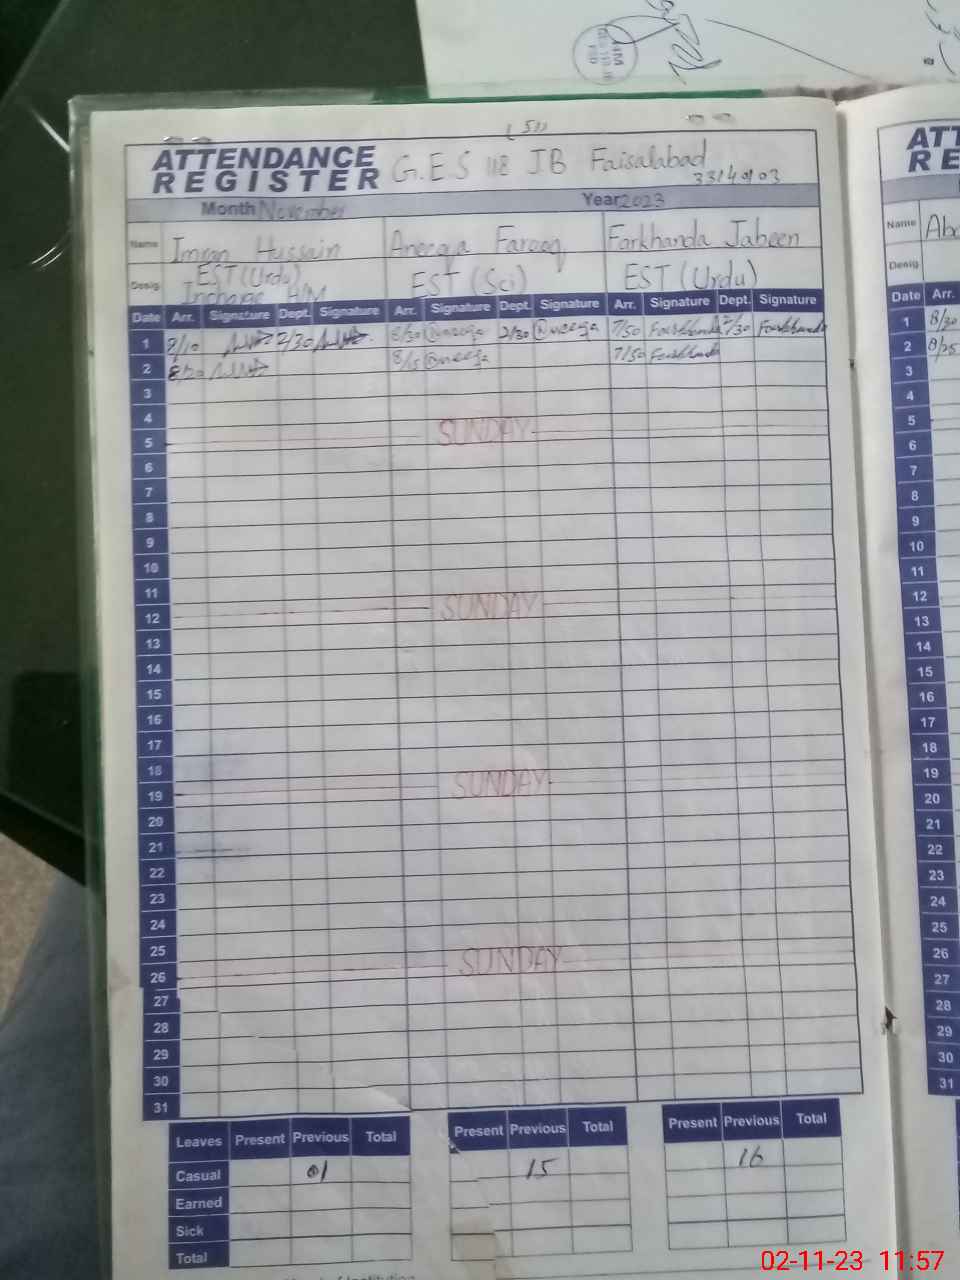 (51)
ATTENDANCE
REGISTER
G.E.S 118 JB Faisalabad
33140103
Month November Year 2023
Name Imran Hussain Aneeqa Farooq Farkhanda Jabeen
Desig. EST (Urdu) EST (Sci) EST (Urdu)
Incharge H/M
Date Arr. Signature Dept. Signature Arr. Signature Dept. Signature Arr. Signature Dept. Signature
1 8/10 2/30 8/30 Aneeqa 2/30 Aneeqa 7/50 Farkhanda 2/30 Farkhanda
2 8/20 8/15 Aneeqa 7/50 Farkhanda
3
4
5 SUNDAY
6
7
8
9
10
11
12 SUNDAY
13
14
15
16
17
18
19 SUNDAY
20
21
22
23
24
25
26 SUNDAY
27
28
29
30
31
Leaves Present Previous Total Present Previous Total Present Previous Total
Casual 01 15 16
Earned
Sick
Total
ATT
RE
Name Abd
Desig
Date Arr.
1 8/30
2 8/25
3
4
5
6
7
8
9
10
11
12
13
14
15
16
17
18
19
20
21
22
23
24
25
26
27
28
29
30
31
02-11-23 11:57